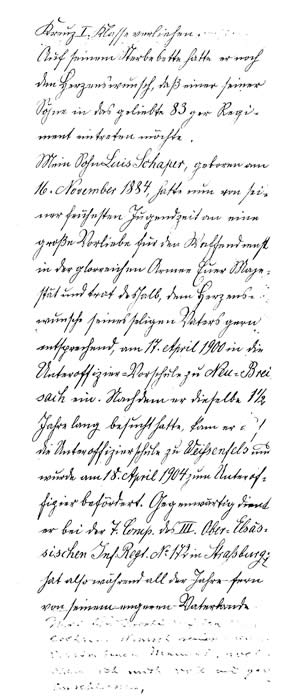 Kreuz I. Klasse verliehen.
Auf seinem Sterbebette hatte er noch
den Herzenswunsch, daß einer seiner
Söhne in das geliebte 83 ger Regi-
ment eintreten möchte.
Mein Sohn Luis Schaper, geboren am
16. November 1884, hatte nun von sei-
ner frühesten Jugendzeit an eine
große Vorliebe für den Waffendienst
in der glorreichen Armee Euer Maje-
stät und trat deshalb, dem Herzens-
wunsche seines seligen Vaters gern
entsprechend, am 17. April 1900 in die
Unteroffizier-Vorschule zu Neu-Brei
sach ein. Nachdem er dieselbe 1 1/2
Jahre lang besucht hatte, kam er
die Unteroffizierschule zu Weißenfels und
wurde am 15. April 1904 zum Unterof-
fizier befördert. Gegenwärtig dient
er bei der 7. Comp. des III. Ober-Elsäs-
sischen Inf. Regt. No. 172 in Straßburg,
hat also während all der Jahre fern
von seinem engeren Vaterlande